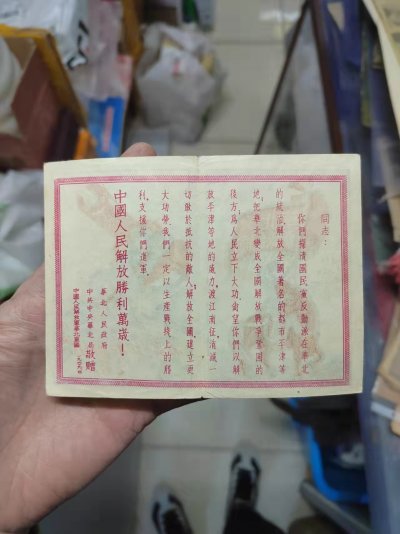 同志：
你們摧清國民黨反動派在華北
的統治，解放全國著名的都市平津等
地，把華北變成全國解放戰爭鞏固的
後方，爲人民立下大功，希望你們以解
放平津等地的威力，渡江南征，消滅一
切敢於抵抗的敵人，解放全國，建立更
大功勞，我們一定以生產戰綫上的勝
利，支援你們進軍。
中國人民解放勝利萬歲！
華北人民政府
中共中央華北局 敬贈
中國人民解放軍華北軍區
一九四九年